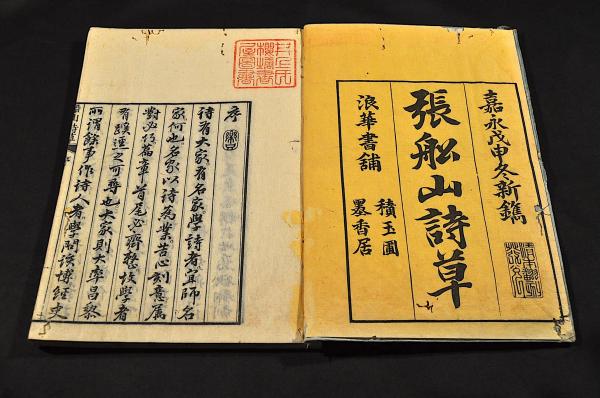 嘉永戊申冬新鐫
張船山詩草
積玉圃
墨香居
浪華書舗
序
詩有大家有名家學詩者宜師名
家何也名家以詩為業苦心刻意屬
對必後篇章首尾必齊整故學者
有蹊逕之可尋也大家則大率昌黎
所謂餘事作詩人者學問該博經史